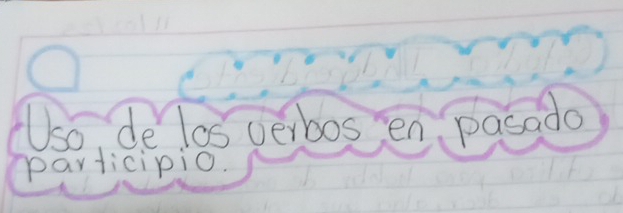 Uso de los verbos en pasado
participio.